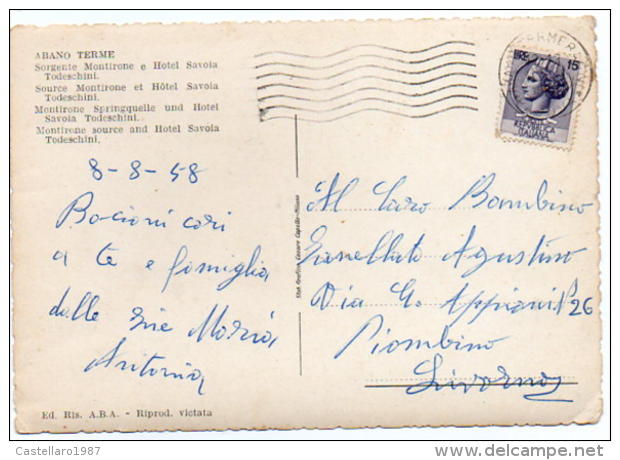 ABANO TERME
Sorgente Montirone e Hotel Savoia
Todeschini.
Source Montirone et Hôtel Savoia
Todeschini.
Montirone Springquelle und Hotel
Savoia Todeschini.
Montirone source and Hotel Savoia
Todeschini.
8-8-58
Bacioni cari
a te e famiglia
dalle zie Maria
Antonia
Stab. Grafico Cesare Capello-Milano
15
REPUBBLICA
ITALIANA
Al Caro Bambino
Gianellato Agustino
Via G. Appiani 26
Piombino
Livorno
Ed. Ris. A.B.A. - Riprod. vietata
Castellaro1987
www.delcampe.net